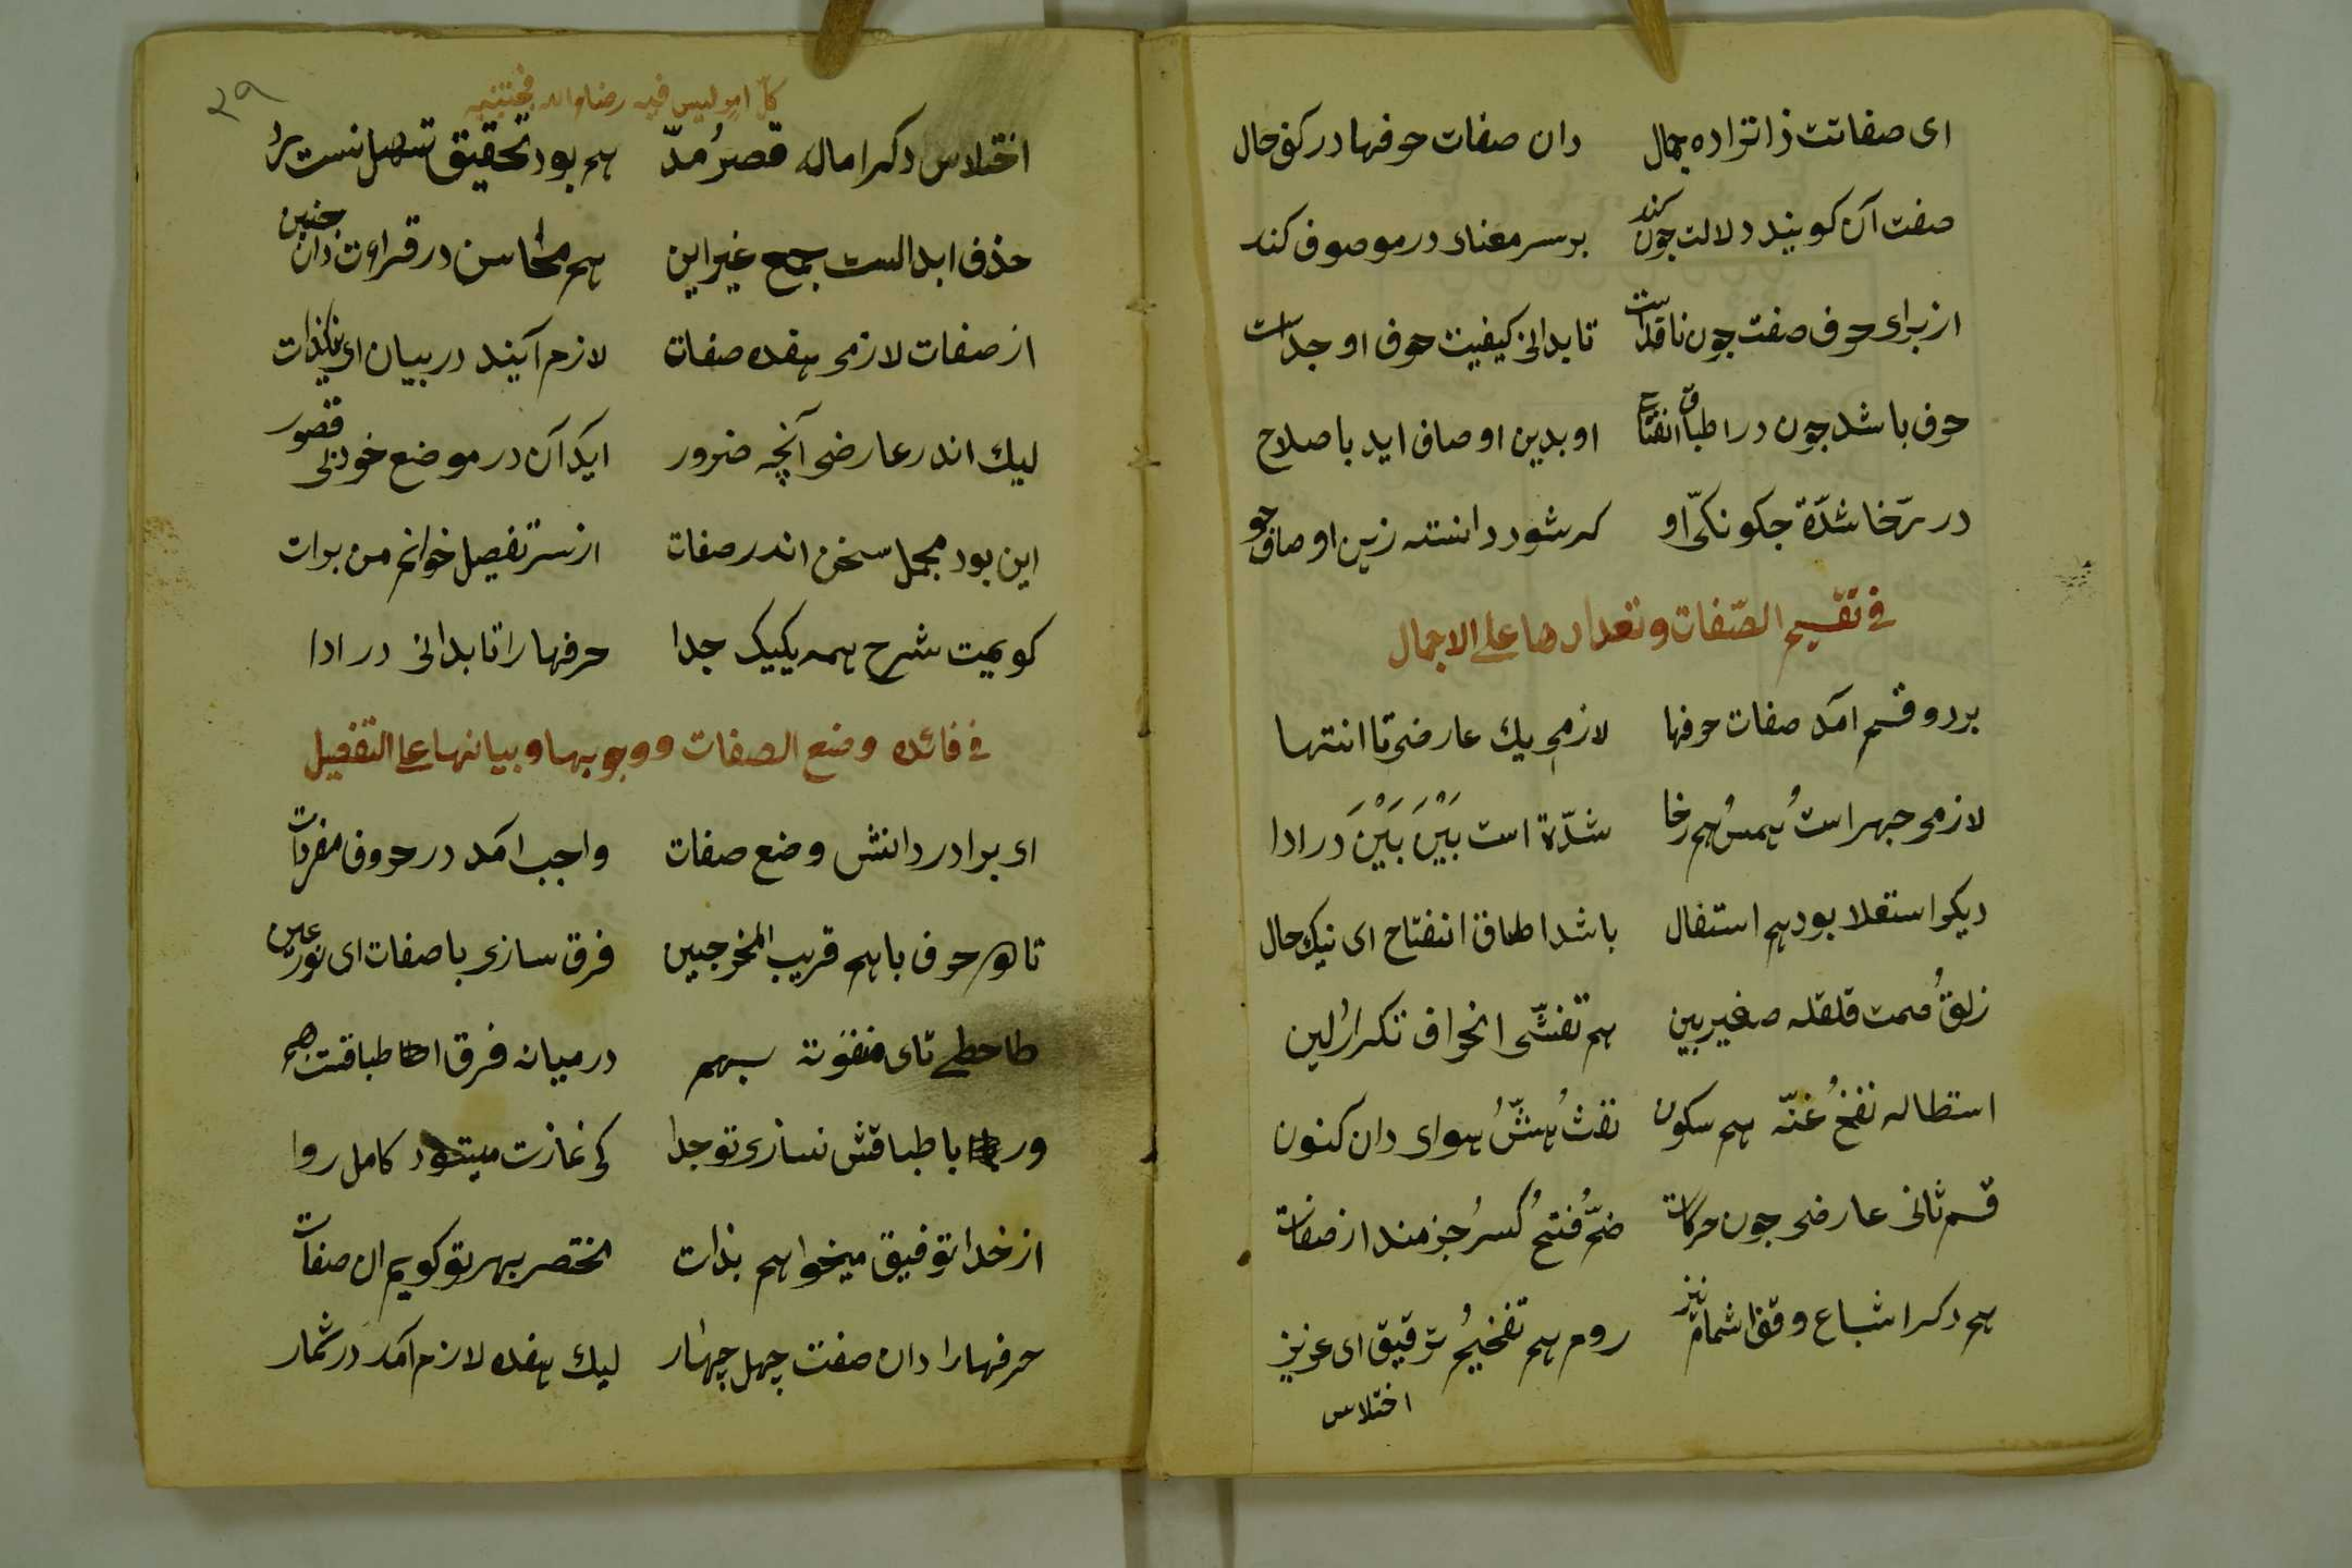 ای صفاتت ذاتراده جمال دان صفات حرفها در کف حال
صفت آن کویند دلالت چون کند بر سر معنای در موصوف کند
از برای حرف صفت چون ناقدست تا بدانی کیفیت حرف او جداست
حرف باشد چون در اطباق انفتاح او بدین اوصاف اید با صلاح
در رخا شدّة چکونکیّ او که شود دانسته زین اوصاف جو
فی تقسیم الصّفات و تعدادها علی الاجمال
بر دو قسم امد صفات حرفها لازمی یك عارضی تا انتها
لازمی جهر است همسُ هم رخا شدّة است بَیْنَ بَیْنَ در ادا
دیکر استعلا بود هم استفال باشد اطباق انفتاح ای نیك حال
زلقُ صمت قلقله صفیر بین هم تفشّی انحراف تکرارُ لین
استطاله نفخُ غنّه هم سکون نفثُ هشُّ هوای دان کنون
قسم ثانی عارضی چون حرکات ضمُّ فتحُ کسرُ جزمند از صفات
هم دکر اشباع وقف اشمام نیز روم هم تفخیمُ ترقیق ای عزیز
اختلاس
۲۹
کلّ امر لیس فیه رضاء الله فجتنبه
اختلاس دکر اماله قصرُ مدّ هم بود تحقیق تسهل نبست
حذف ابدالست جمع غیر این هم محاسن در قراءت دان چنین
از صفات لازمی هفده صفات لازم آیند در بیان ای نیکذات
لیك اندر عارضی آنچه ضرور آید آن در موضع خود بی قصور
این بود مجمل سخن اندر صفات از سر تفصیل خوانم من برات
کویمت شرح همه یکیک جدا حرفها را تا بدانی در ادا
فی فائده وضع الصفات ووجوبها و بیانها علی التفصیل
ای برادر دانش وضع صفات واجب امد در حروف مفردات
تا هر حرف با هم قریب المخرجین فرق سازی با صفات ای نور عین
طا حطی تای منقوته بهم در میانه فرق اطباقت هم
ور باطباقش نسازی تو جدا کی نمازت میشود کامل روا
از خدا توفیق میخواهم بذات مختصر بهر تو کویم ان صفات
حرفها را دان صفت چهل چهار لیك هفده لازم آمد در شمار